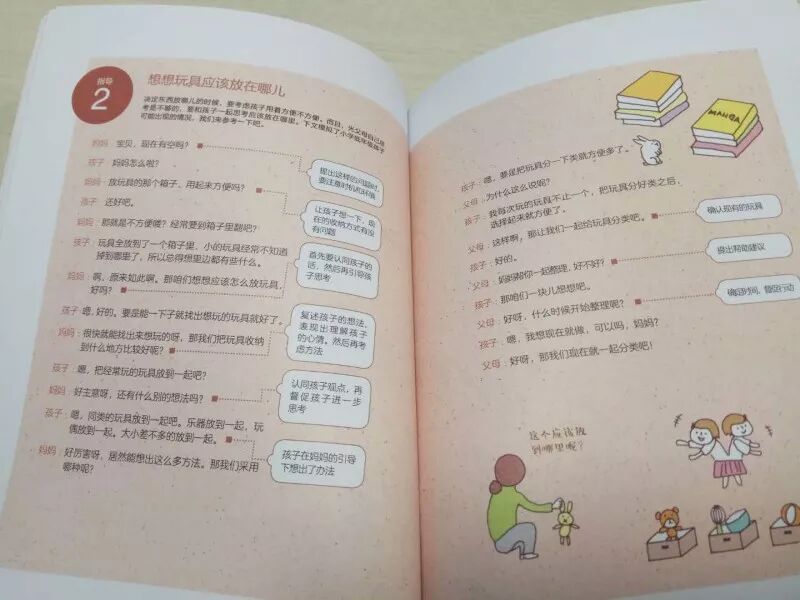 指导
2
想想玩具应该放在哪儿
决定东西放哪儿的时候，要考虑孩子用着方便不方便。而且，光父母自己思
考是不够的，要和孩子一起思考应该放在哪里。下文模拟了小学低年级孩子
可能出现的情况，我们来参考一下吧。
妈妈：宝贝，现在有空吗？
孩子：妈妈怎么啦？
提出这样的问题时，
要注意时机和环境
妈妈：放玩具的那个箱子，用起来方便吗？
孩子：还好吧。
让孩子想一下，现
在的收纳方式有没
有问题
妈妈：那就是不方便喽？经常要到箱子里翻吧？
孩子：玩具全放到了一个箱子里，小的玩具经常不知道
掉到哪里了，所以总得想里边都有些什么。
首先要认同孩子的
话，然后再引导孩
子思考
妈妈：啊，原来如此啊。那咱们想想应该怎么放玩具，
好吗？
孩子：嗯，好的。要是能一下子就找出想玩的玩具就好了。
妈妈：很快就能找出来想玩的呀，那我们把玩具收纳
到什么地方比较好呢？
复述孩子的想法，
表现出理解孩子
的心情。然后再考
虑方法
孩子：嗯，把经常玩的玩具放到一起吧？
妈妈：好主意呀，还有什么别的想法吗？
认同孩子观点，再
督促孩子进一步
思考
孩子：嗯，同类的玩具放到一起吧。乐器放到一起，玩
偶放到一起。大小差不多的放到一起。
孩子在妈妈的引导
下想出了办法
妈妈：好厉害呀，居然能想出这么多方法。那我们采用
哪种呢？
MANGA
孩子：嗯，要是把玩具分一下类就方便多了。
父母：为什么这么说呢？
孩子：我每次玩的玩具不止一个，把玩具分好类之后，
选择起来就方便了。
父母：这样啊，那让我们一起给玩具分类吧。
确认现有的玩具
孩子：好的。
父母：妈妈帮你一起整理，好不好？
提出帮助建议
孩子：那咱们一块儿想想吧。
父母：好呀，什么时候开始整理呢？
确定时间，督促行动
孩子：嗯，我想现在就做，可以吗，妈妈？
父母：好呀，那我们现在就一起分类吧！
这个应该放
到哪里呢？